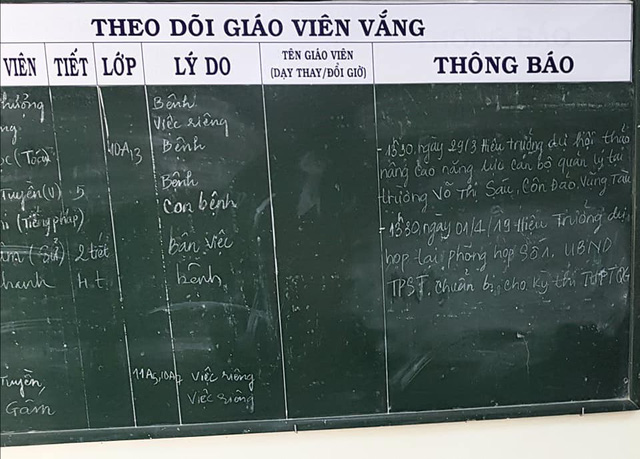 THEO DÕI GIÁO VIÊN VẮNG
VIÊN TIẾT LỚP LÝ DO TÊN GIÁO VIÊN (DẠY THAY/ĐỔI GIỜ) THÔNG BÁO
Bệnh
Việc riêng
(Toán 10A13 Bệnh
Bệnh
Tuyền (V) 5 Con bệnh
(Tiếng pháp)
(Sử) 2 tiết bận việc
4t bệnh
Tuyền, 11A5, 10A2 Việc riêng
Gấm Việc riêng
- 13h30, ngày 29/3 Hiệu trưởng dự hội thảo
nâng cao năng lực cán bộ quản lý tại
trường Võ Thị Sáu, Côn Đảo, Vũng Tàu
- 13h30, ngày 01/4/19 Hiệu Trưởng dự
họp tại phòng họp Số 1. UBND
TPST. chuẩn bị cho kỳ thi THPTQG